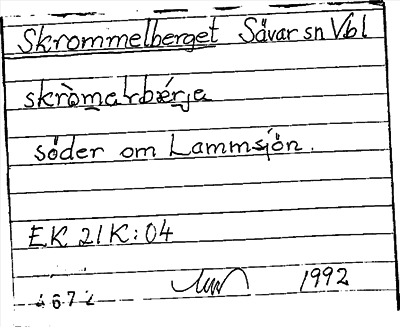 Skrommelberget Sävar sn Vbl
skròmalbǽrja
söder om Lammsjön.
EK 21K:04
1992